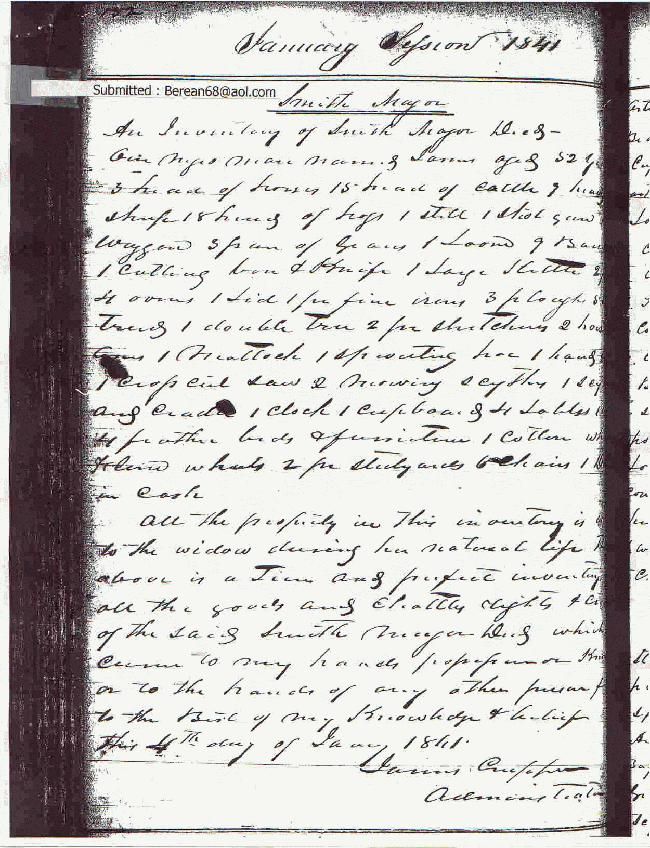 January Session 1841
Submitted : Berean68@aol.com
Smith Major
An Inventory of Smith Major Decd —
One negro man named James aged 52
3 head of horses 15 head of cattle 9 head
sheep 18 head of hogs 1 still 1 shot gun
waggon 3 pair of Gears 1 Loom 9
1 Cutting box & Knife 1 Large Kettle 2
4 ovens 1 Lid 1 pr fire irons 3 ploughs
trees 1 double tree 2 pr stretchers 2
1 Mattock 1 sprouting hoe 1 hand
1 cross cut saw 2 mowing scythes 1
and cradle 1 clock 1 cupboard 4 tables
4 feather beds & furniture 1 cotton
wheels 2 pr stilyards 6 chairs 1
in cash
All the property in this inventory is
to the widow during her natural life
above is a True and perfect inventory
all the goods and Chattles rights &
of the said Smith Major Decd which
came to my hands possession
or to the hands of any other person
to the Best of my Knowledge & belief
this 4th day of Jany 1841.
James
Administrator